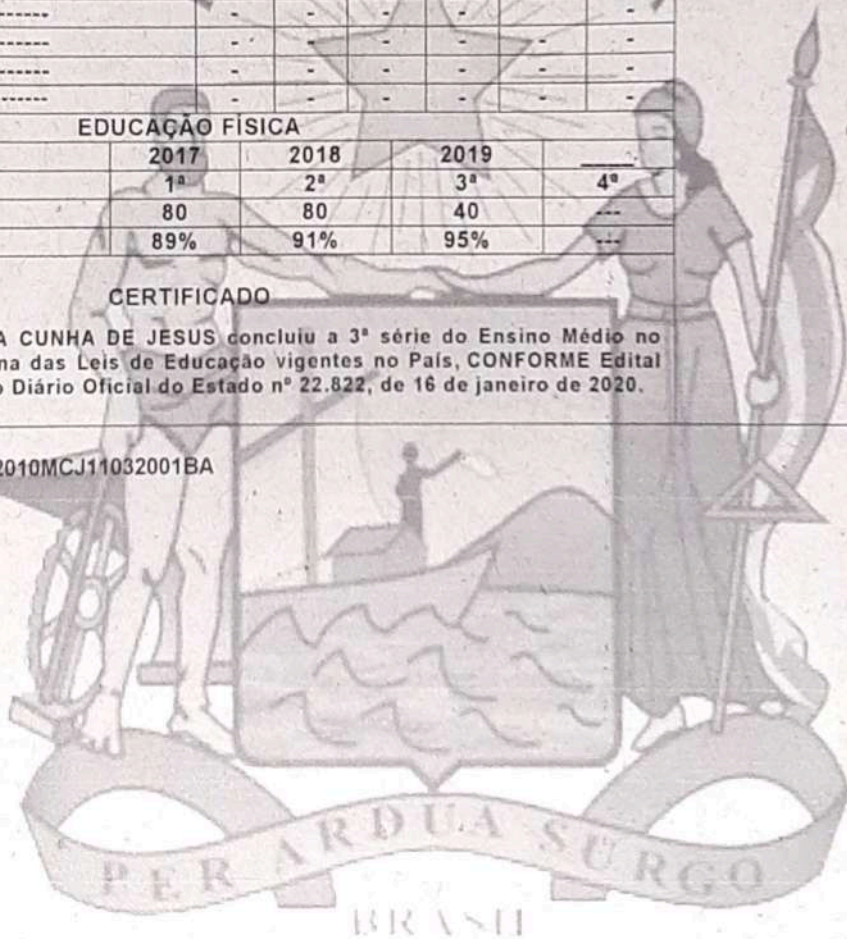 ------- - - - - - -
------- - - - - - -
------- - - - - - -
------- - - - - - -
EDUCAÇÃO FÍSICA
2017 2018 2019 ____
1ª 2ª 3ª 4ª
80 80 40 ---
89% 91% 95% ---
CERTIFICADO
A CUNHA DE JESUS concluiu a 3ª série do Ensino Médio no
das Leis de Educação vigentes no País, CONFORME Edital
Diário Oficial do Estado nº 22.822, de 16 de janeiro de 2020.
2010MCJ11032001BA
PER ARDUA SURGO
BRASIL